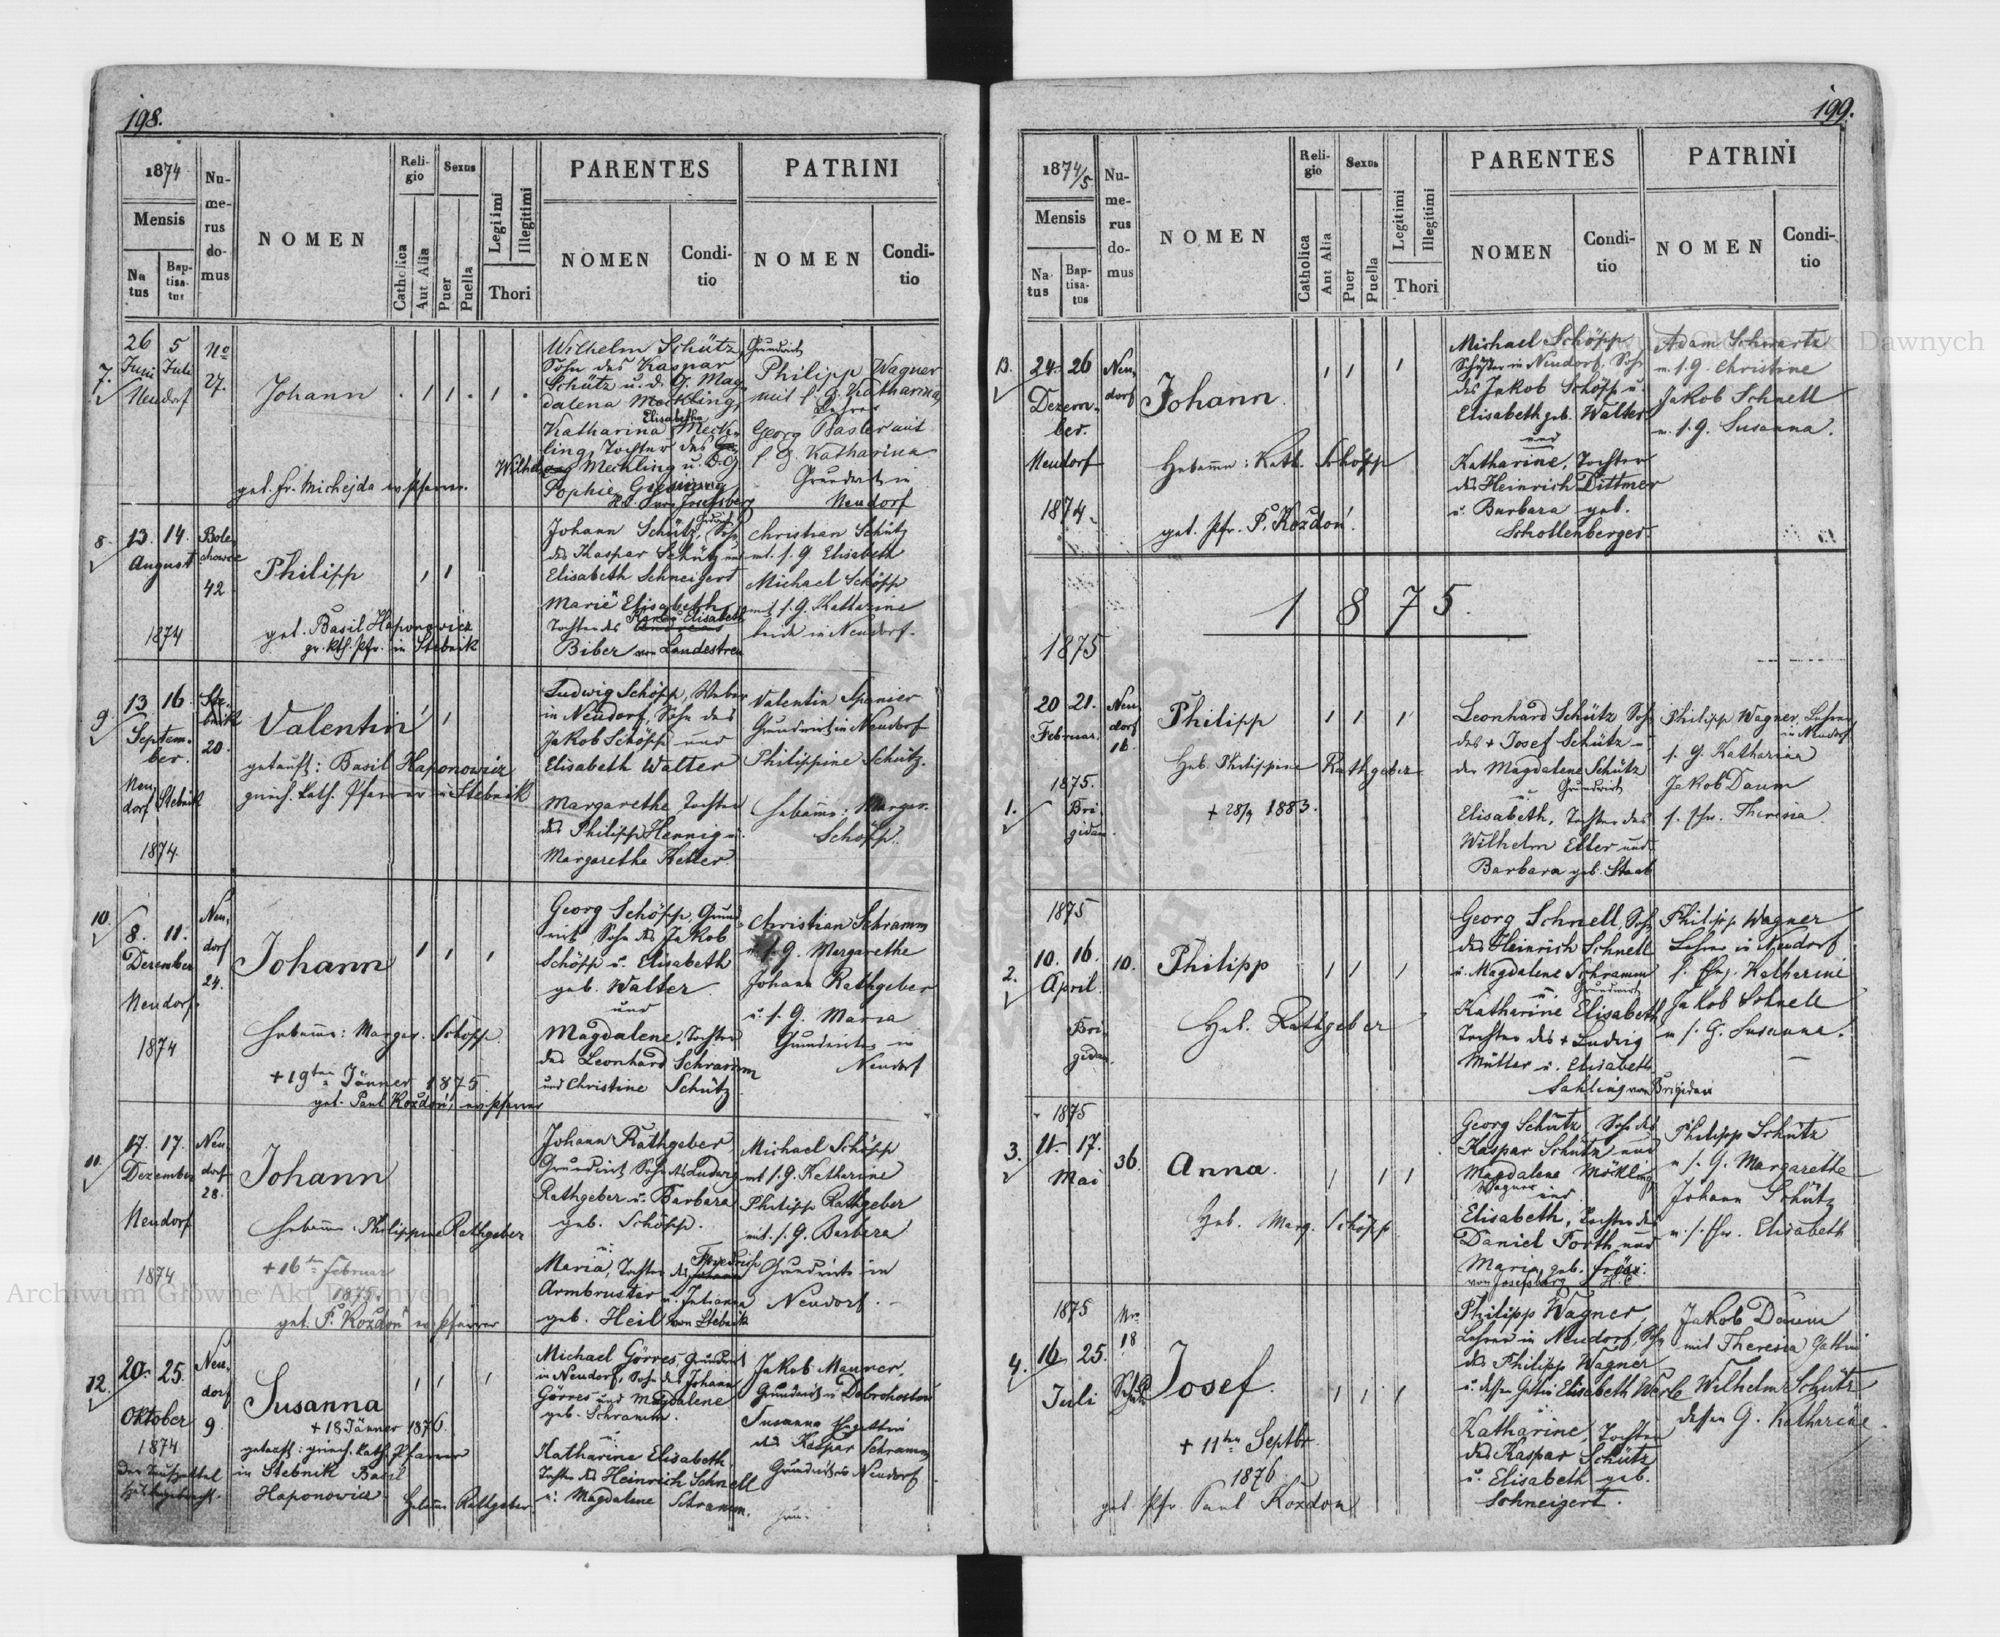 198.
1874
Mensis
Na
tus
Bap-
tisa-
tus
Nu-
me-
rus
do-
mus
NOMEN
Reli-
gio
Catholica
Aut Alia
Sexus
Puer
Puella
Legitimi
Illegitimi
Thori
PARENTES
NOMEN
Condi-
tio
PATRINI
NOMEN
Condi-
tio
7.
26 5
Juni Juli
Neudorf
No
27.
Johann
get. Fr. Michejda ev. Pfarrer.
Wilhelm Schütz, Grundwirt
Sohn des Kaspar
Schütz u. d. G. Mag-
dalena Meckling,
Elisabetha
Katharina Meck-
ling, Tochter des
Wilhelm Meckling u. d. G.
Sophie
von Josefsberg
Philipp Wagner
mit s. G. Katharina,
Lehrer
Georg Basler mit
s. G. Katharina
Grundwirt in
Neudorf
8.
13. 14.
August
1874
Bole-
chowce
42
Philipp
get. Basil Haponowicz
gr. kth. Pfr. in Stebnik
Johann Schütz, Sohn
des Kaspar Schütz und
Elisabeth Schneigert
Marie Elisabeth
Tochter des
Biber von Landestreu
Christian Schütz
mt. s. G. Elisabeth
Michael Schöpp
mt s. G. Katharine
beide in Neudorf.
9.
13 16
Septem-
ber.
Neu-
dorf Stebnik
1874.
Ste-
bnik
20.
Valentin
getauft: Basil Haponowicz
griech. kath. Pfarrer in Stebnik
Ludwig Schöpp, Weber
in Neudorf, Sohn des
Jakob Schöpp und
Elisabeth Walter
Margarethe, Tochter
des Philipp Hennig u.
Margarethe Keller.
Valentin Spanier
Grundwirt in Neudorf
Philippine Schütz.
Hebamme: Margar.
Schöpp.
10.
8. 11.
Dezember
Neudorf.
1874
Neu-
dorf
24.
Johann
Hebamme: Margar. Schöpp.
+ 19ten Jänner 1875.
get. Paul Kozdoń, ev. Pfarrer
Georg Schöpp, Grund-
wirt, Sohn des Jakob
Schöpp u. Elisabeth
geb. Walter
und
Magdalene, Tochter
des Leonhard Schramm
und Christine Schütz
Christian Schramm
s. G. Margarethe
Johann Rathgeber
u. s. G. Maria
Grundwirte in
Neudorf
11.
17. 17.
Dezember
Neudorf
1874
Neu-
dorf
28.
Johann
Hebamme. Philippine Rathgeber
+ 16ten Februar
1875.
get. P. Kozdoń ev. Pfarrer
Johann Rathgeber,
Grundwirt, Sohn des Ludwig
Rathgeber u. Barbara
geb. Schöpp.
u.
Maria, Tochter des Friedrich
Armbruster u. Julianna
geb. Heil von Stebnik
Michael Schöpp
mt s. G. Katharine
Philipp Rathgeber
mit s. G. Barbara
Grundwirte in
Neudorf. —
12.
20. 25.
Oktober
1874
Der Taufzettel
Neu-
dorf
9.
Susanna
+ 18 Jänner 1876.
getauft: griech. kath. Pfarrer
in Stebnik Basil
Haponowicz.
Hebamme Rathgeber.
Michael Görres, Grundwirt
in Neudorf, Sohn des Johann
Görres und Magdalene
geb. Schramm.
u.
Katharine Elisabeth,
Tochter des Heinrich Schnell
u. Magdalene Schramm.
Jakob Maurer,
Grundwirt in Dobrohostow
Susanna Gattin
des Kaspar Schramm,
Grundwirt in Neudorf
199.
1874/5
Mensis
Na-
tus
Bap-
tisa-
tus
Nu-
me-
rus
do-
mus
NOMEN
Reli-
gio
Catholica
Aut Alia
Sexus
Puer
Puella
Legitimi
Illegitimi
Thori
PARENTES
NOMEN
Condi-
tio
PATRINI
NOMEN
Condi-
tio
13.
24. 26
Dezem-
ber.
Neudorf
1874.
Neu-
dorf
Johann
Hebamme: Kath. Schöpp
get. Pfr. P. Kozdoń.
Michael Schöpp,
Schuster in Neudorf, Sohn
des Jakob Schöpp u.
Elisabeth geb. Walter
und
Katharine, Tochter
des Heinrich Dittmer
u. Barbara geb.
Schollenberger
Adam Schwartz
u. s. G. Christine
Jakob Schnell
u. s. G. Susanna.
1875.
1875
20 21.
Februar.
1875.
Bri-
gidau.
1.
Neu-
dorf
16.
Philipp
Heb. Philippine Rathgeber
+ 28/9 1883.
Leonhard Schütz Sohn
des + Josef Schütz u.
der Magdalene Schütz
u. Grundwirt
Elisabeth, Tochter des
Wilhelm Eller und
Barbara geb. Staab
Philipp Wagner, Lehrer
in Neudorf
s. G. Katharina
Jakob Daum
s. Theresia.
1875
2.
10. 16.
April.
Bri-
gidau.
10.
Philipp
Heb. Rathgeber
Georg Schnell, Sohn
des Heinrich Schnell
u. Magdalene Schramm
u. Grundwirt
Katharine Elisabeth,
Tochter des + Ludwig
Müller u. Elisabeth
Sahling von Brigidau
Philipp Wagner
Lehrer in Neudorf
s. Katharine
Jakob Schnell
u s. G. Susanna.
1875
3.
11. 17.
Mai
36.
Anna.
Heb. Marg. Schöpp
Georg Schütz, Sohn des
Kaspar Schütz und
Magdalene Möckling
Wagner und
Elisabeth, Tochter des
Daniel Porth und
Maria, geb.
von Josefsberg
Philipp Schütz
u. s. G. Margarethe
Johann Schütz
u. s. Elisabeth
1875
4.
16 25.
Juli
Nr.
18
Josef.
+ 11ten Septbr.
1876.
get. Pfr Paul Kozdon
Philipp Wagner,
Lehrer in Neudorf, Sohn
des Philipp Wagner
u. dessen Gattin Elisabeth Werle
u.
Katharine, Tochter
des Kaspar Schütz
u. Elisabeth geb.
Schneigert.
Jakob Daum
mit Theresia Gattin
Wilhelm Schütz
dessen G. Katharine.
Archiwum Główne Akt Dawnych
Archiwum Główne Akt Dawnych